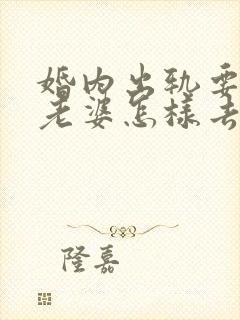 婚内出轨要
老婆怎样去
隆嘉